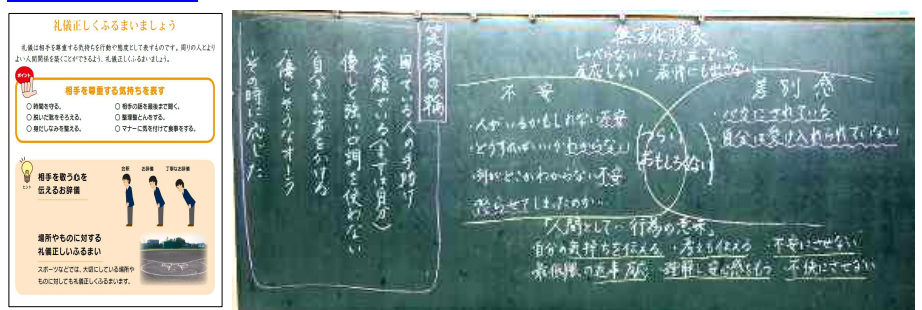 礼儀正しくふるまいましょう
礼儀は相手を尊重する気持ちを行動や態度として表すものです。周りの人とより
よい人間関係を築くことができるよう、礼儀正しくふるまいましょう。
ポイント
相手を尊重する気持ちを表す
○ 時間を守る。
○ 脱いだ靴をそろえる。
○ 身だしなみを整える。
○ 相手の話を最後まで聞く。
○ 整理整とんをする。
○ マナーに気を付けて食事をする。
ヒント
相手を敬う心を
伝えるお辞儀
会釈
お辞儀
丁寧なお辞儀
場所やものに対する
礼儀正しいふるまい
スポーツなどでは、大切にしている場所や
ものに対しても礼儀正しくふるまいます。
笑顔の輪
困っている人の手助け
笑顔でいる(まずは自分)
優しと強い口調を使わない
自分から声をかける
優しそうなオーラ
その時に応じた
無言化現象
しゃべらない ただ立っている
反応しない 表情にも出せない
不安
・人がいるかもしれない不安
・どうすればいいかわからない
・何がどこかわからない不安
・怒らせてしまったのか…
つらい
おもしろくない
差別感
・バカにされている
・自分は受け入れられていない
「人間として…行為の意味」
自分の気持ちを伝える ・考えも伝える ・不安にさせない
最低限の返事 応 理解し安心感をもつ 不快にさせない